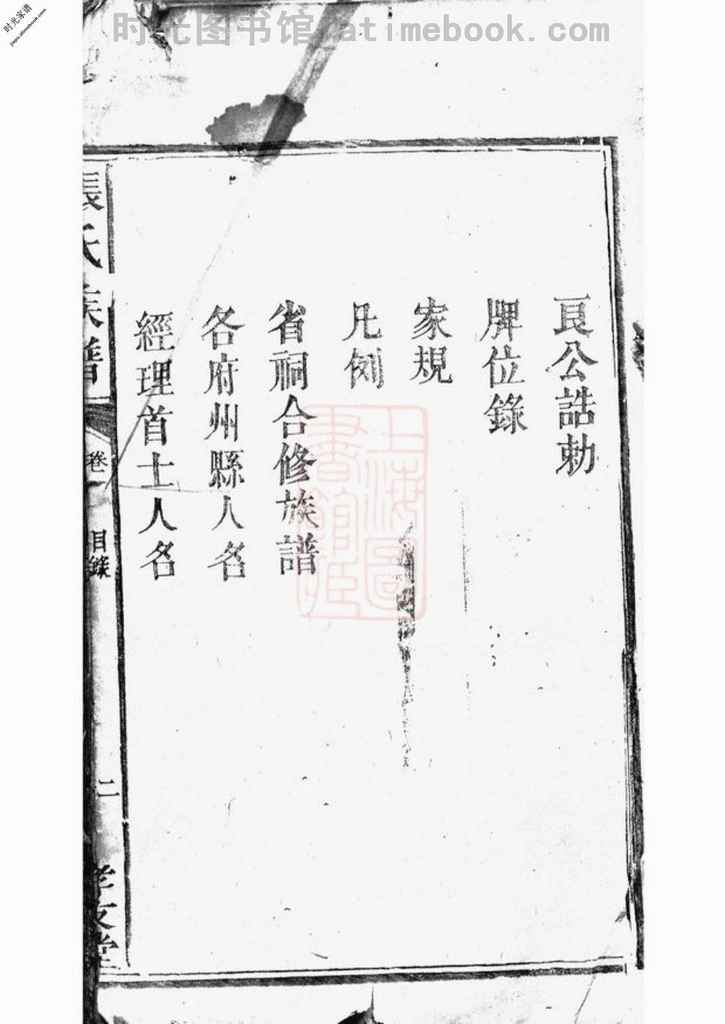 时光图书馆@atimebook.com
时光家谱
良公誥勅
牌位錄
家規
凡例
省祠合修族譜
各府州縣人名
經理首士人名
張氏族譜
卷一
目錄
二
孝友堂
上海圖書館藏